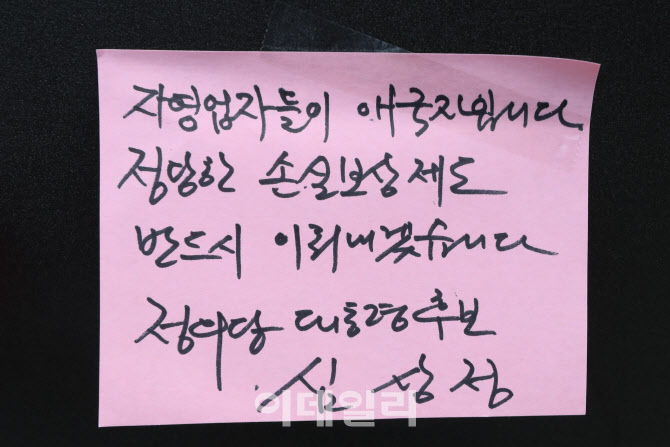 자영업자들이 애국자입니다.
정당한 손실보상 제도
반드시 이뤄내겠습니다
정의당 대통령 후보
심상정
이데일리